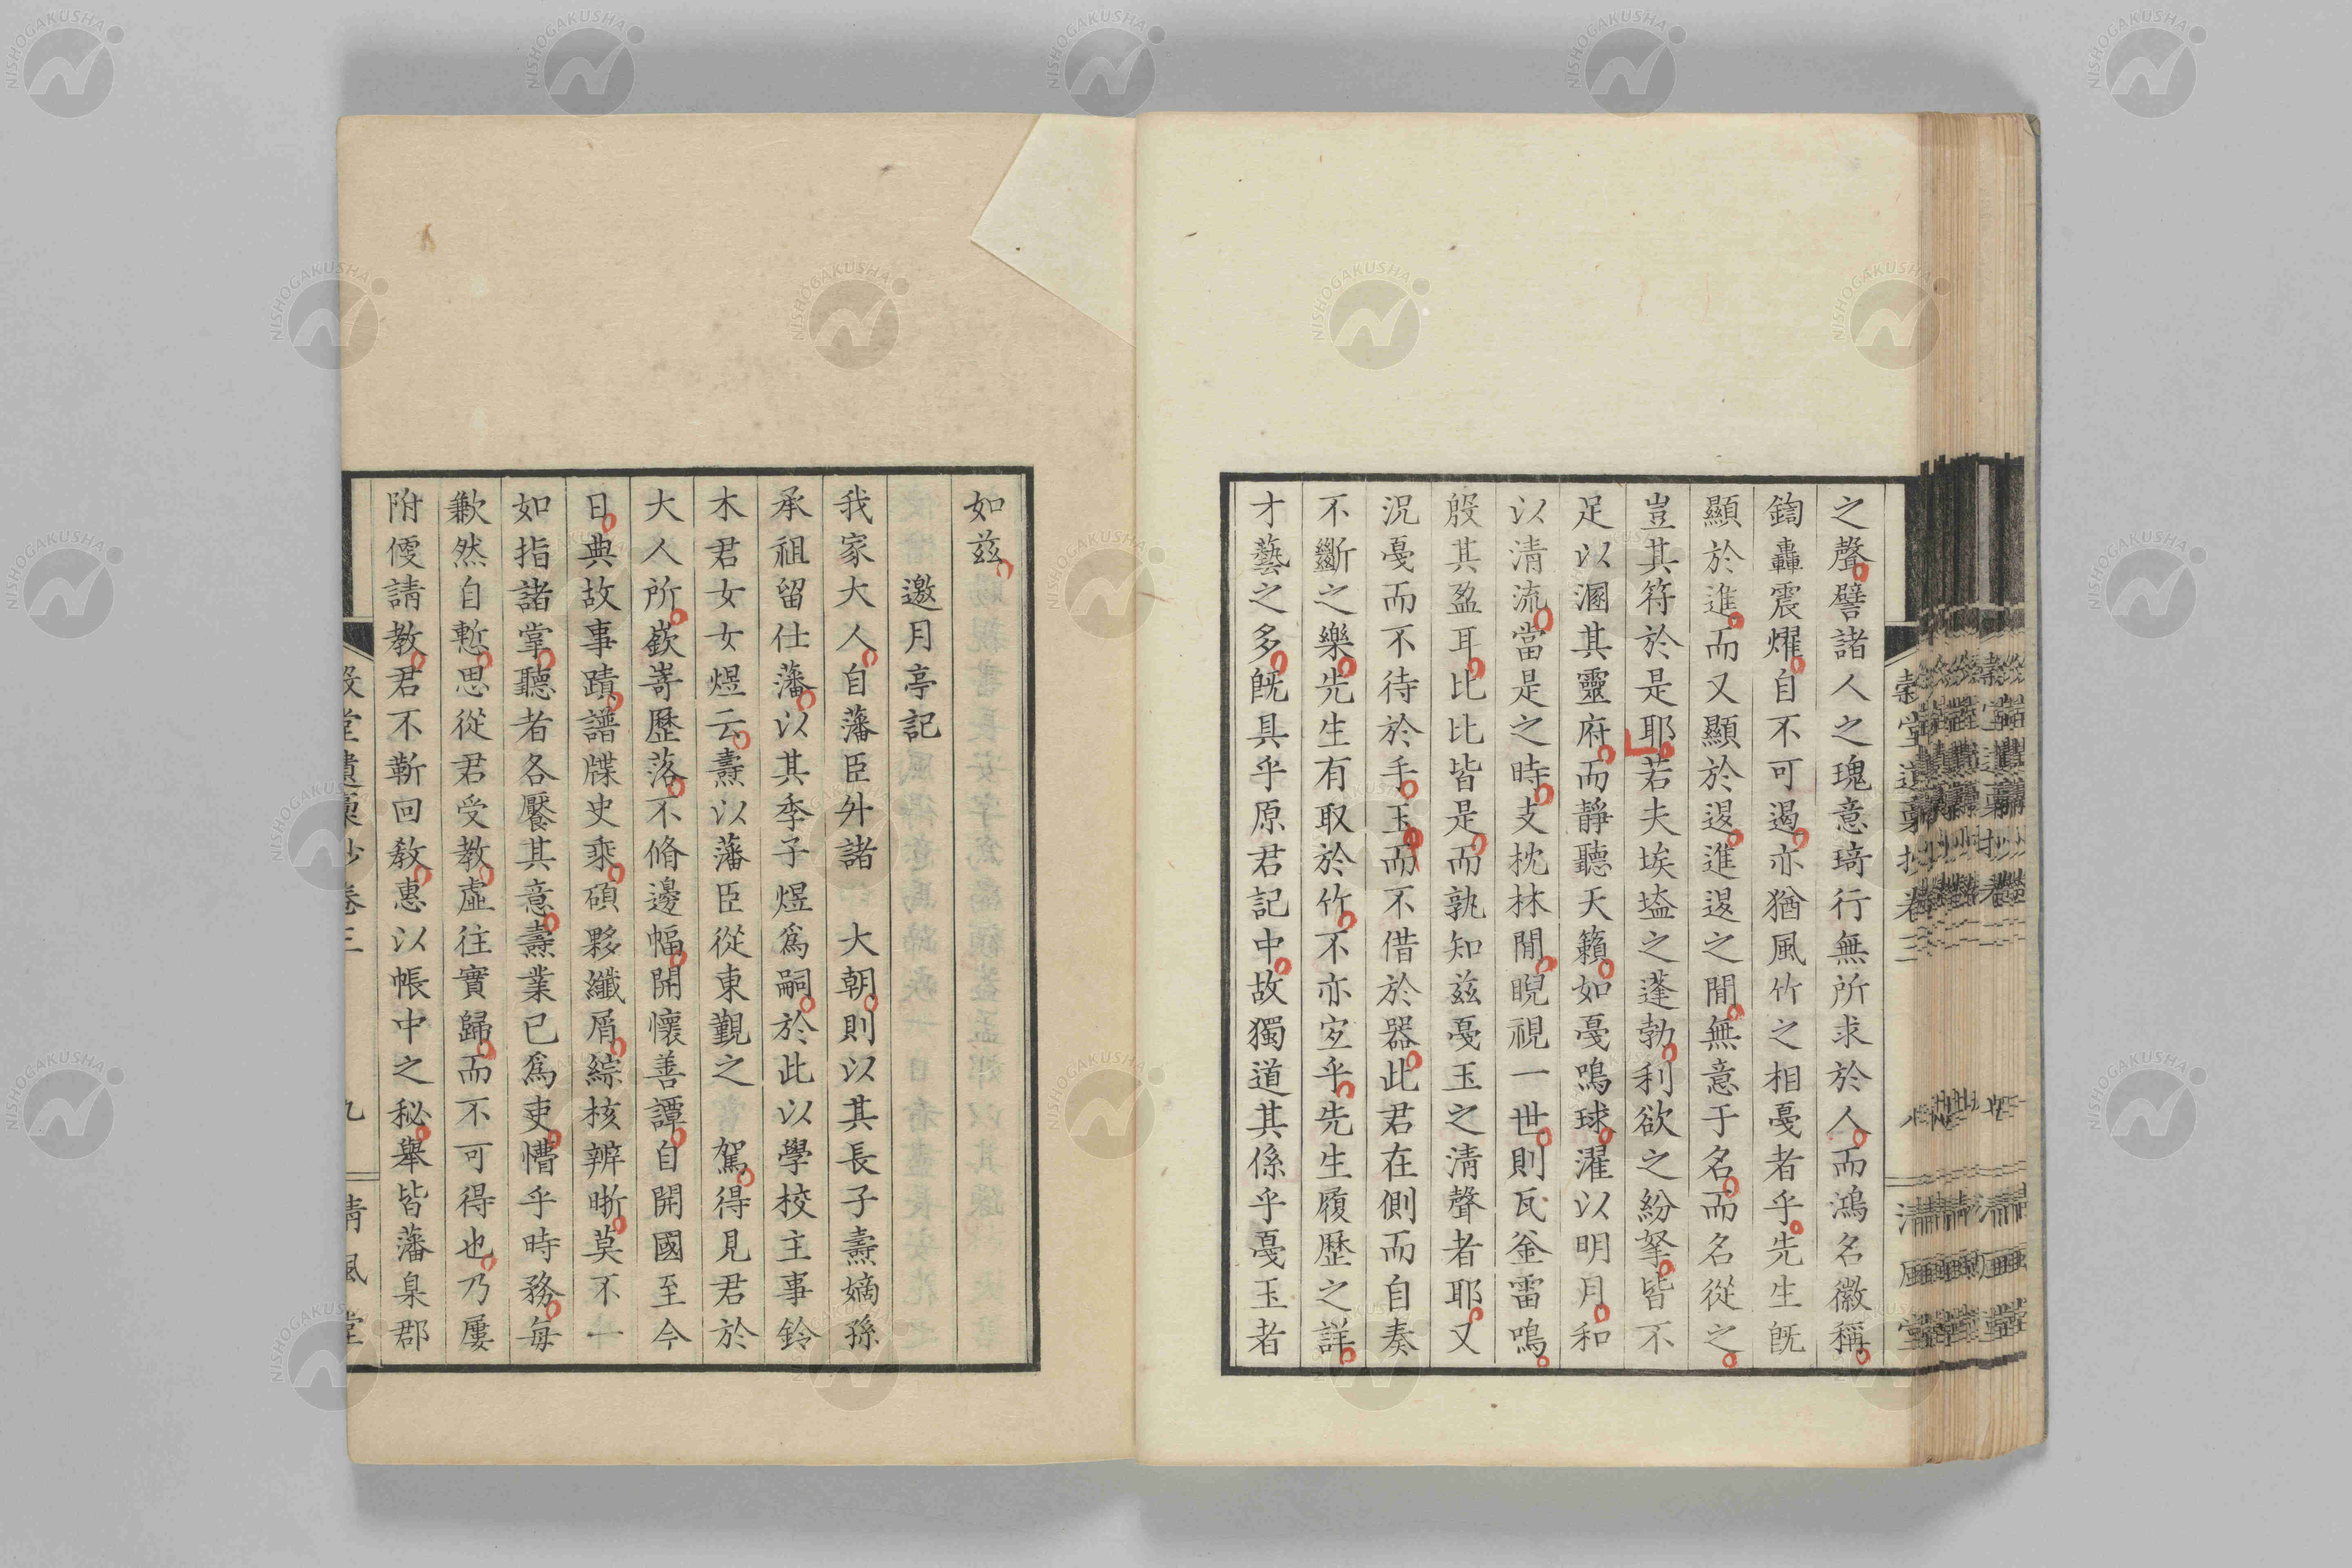 之聲譬諸人之瑰意琦行無所求於人而鴻名徽稱
鍧轟震燿自不可遏亦猶風竹之相戛者乎先生旣
顯於進而又顯於退進退之閒無意于名而名從之
豈其符於是耶若夫埃壒之蓬勃利欲之紛拏皆不
足以溷其靈府而靜聽天籟如戛鳴球濯以明月和
以清流當是之時支枕林閒睨視一世則瓦釜雷鳴
殷其盈耳比比皆是而孰知茲戛玉之清聲者耶又
況戛而不待於手玉而不借於器此君在側而自奏
不斷之樂先生有取於竹不亦宐乎先生履歷之詳
才藝之多旣具乎原君記中故獨道其係乎戛玉者
如茲
邀月亭記
我家大人自藩臣外諸 大朝則以其長子燾嫡孫
承祖留仕藩以其季子煜爲嗣於此以學校主事鈴
木君女女煜云燾以藩臣從東覲之 駕得見君於
大人所嶔嵜歷落不脩邊幅開懷善譚自開國至今
日典故事蹟譜牒史乘碩夥纖屑綜核辨晰莫不一
如指諸掌聽者各饜其意燾業已爲吏懵乎時務每
歉然自慙思從君受教虛往實歸而不可得也乃屢
附偠請教君不靳回敎惠以帳中之秘舉皆藩臬郡
穀堂遺稾抄卷三 八 清風堂
穀堂遺稾抄卷三 九 清風堂
NISHOGAKUSHA